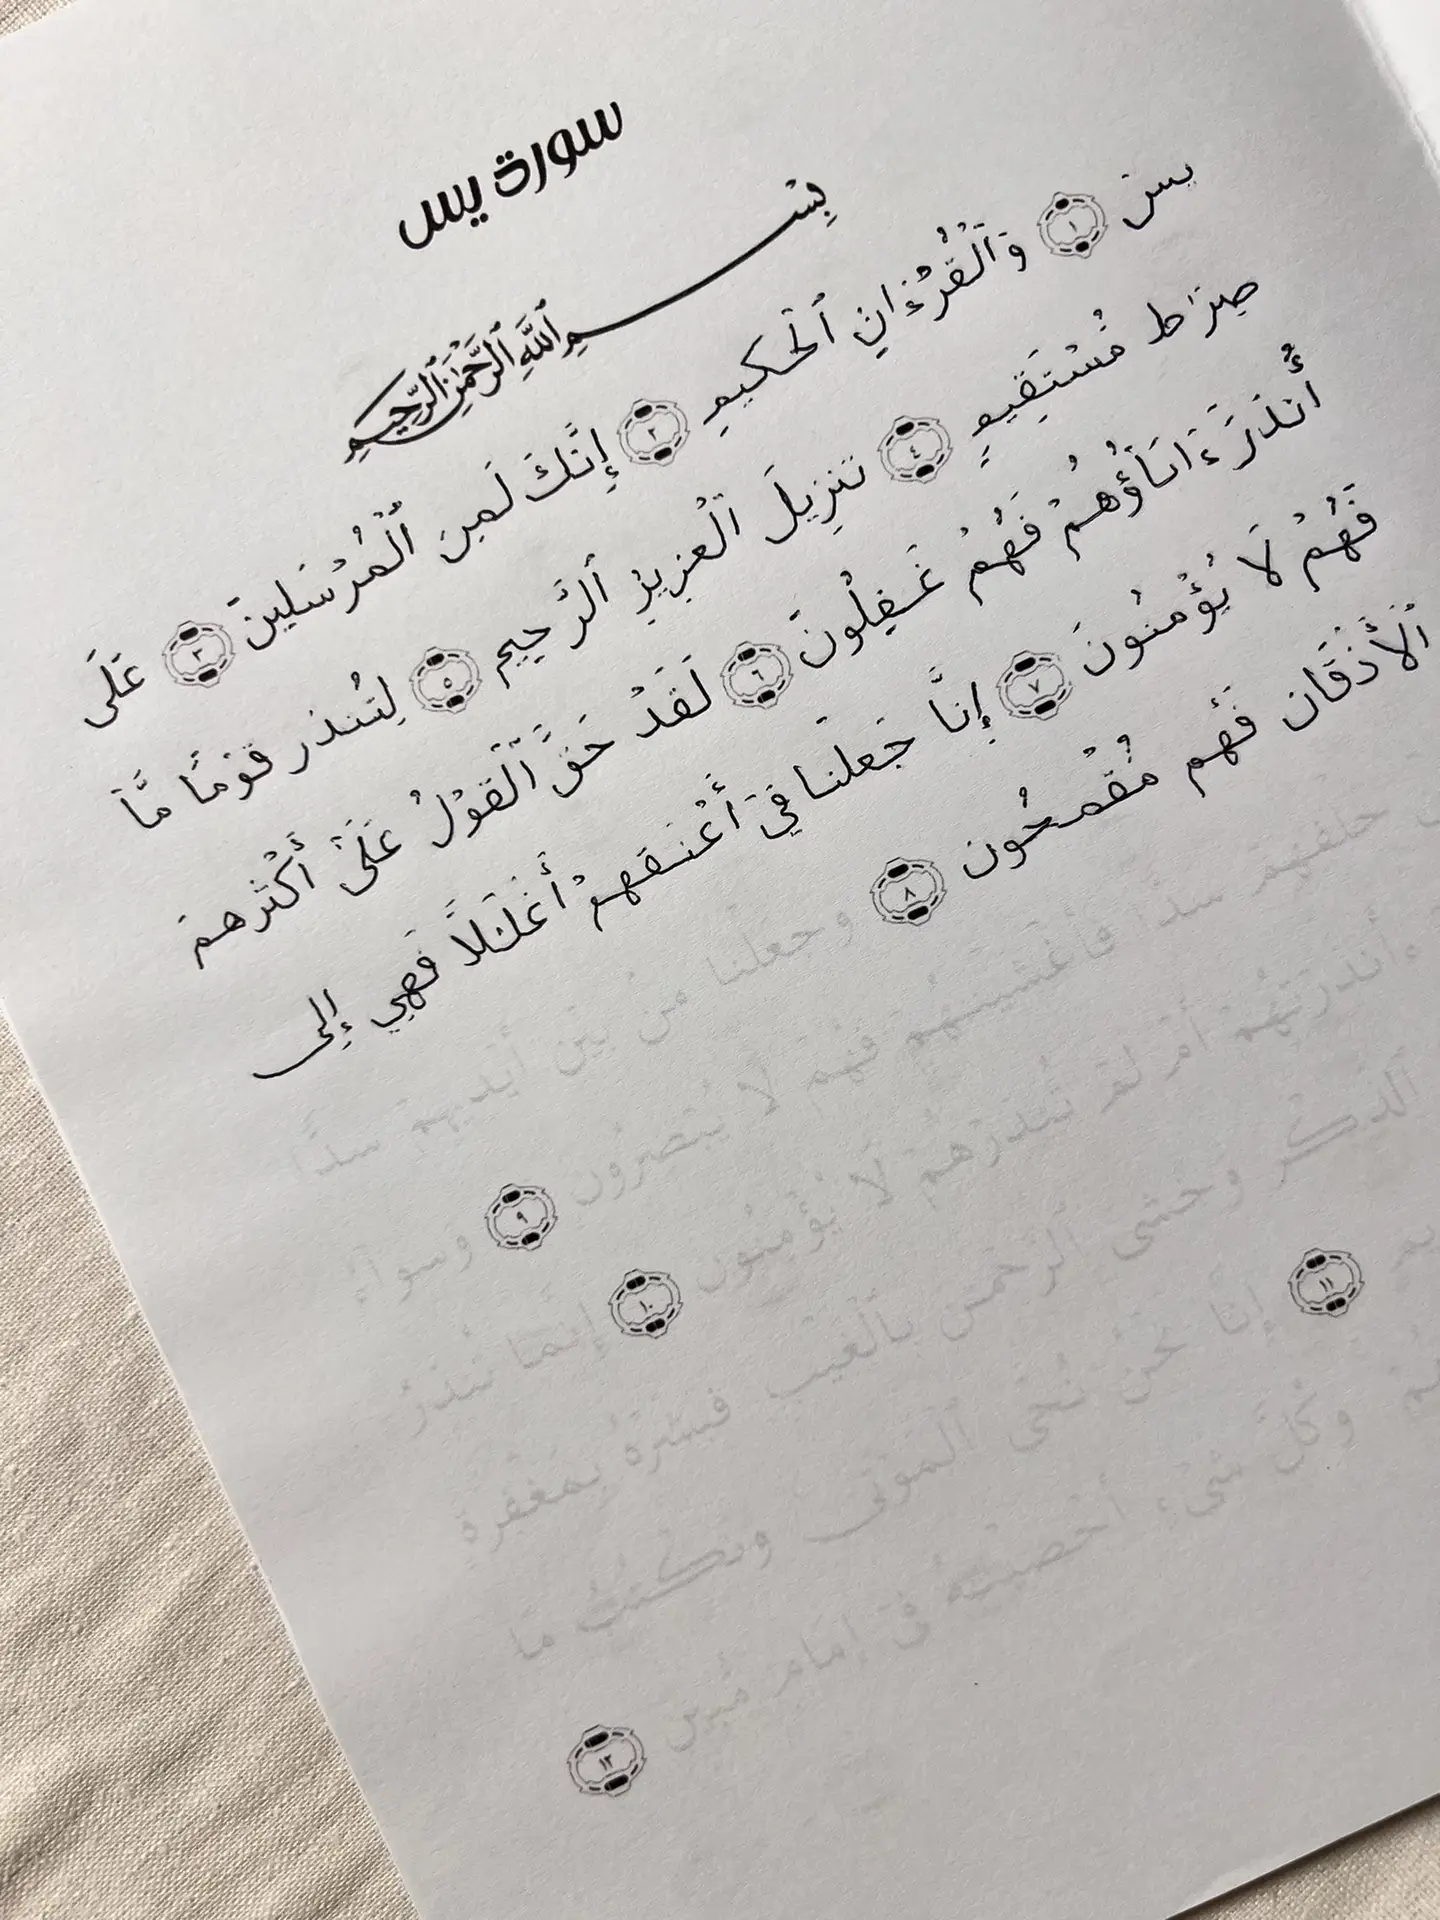 سورة يس
بِسْمِ ٱللَّهِ ٱلرَّحْمَٰنِ ٱلرَّحِيمِ
يسٓ ١ وَٱلْقُرْءَانِ ٱلْحَكِيمِ ٢ إِنَّكَ لَمِنَ ٱلْمُرْسَلِينَ ٣ عَلَى
صِرَاطٍ مُّسْتَقِيمٍ ٤ تَنزِيلَ ٱلْعَزِيزِ ٱلرَّحِيمِ ٥ لِتُنذِرَ قَوْمًا مَّا
أُنذِرَ ءَابَآؤُهُمْ فَهُمْ غَـفِلُونَ ٦ لَقَدْ حَقَّ ٱلْقَوْلُ عَلَىٰٓ أَكْثَرِهِمْ
فَهُمْ لَا يُؤْمِنُونَ ٧ إِنَّا جَعَلْنَا فِىٓ أَعْنَـقِهِمْ أَغْلَـلًا فَهِىَ إِلَى
ٱلْأَذْقَانِ فَهُم مُّقْمَحُونَ ٨ وجعلنا من بين أيديهم سدًّا
خلفهم سدًّا فأغشينهم فهم لا يبصرون ٩ وسوآء
ءأنذرتهم أم لم تنذرهم لا يؤمنون ١٠ إنما تنذر
ٱلذكر وخشى ٱلرحمن بٱلغيب فبشره بمغفرة
١١ إنا نحن نحى ٱلموتى ونكتب ما
وكل شىء أحصينه فى إمام مبين ١٢